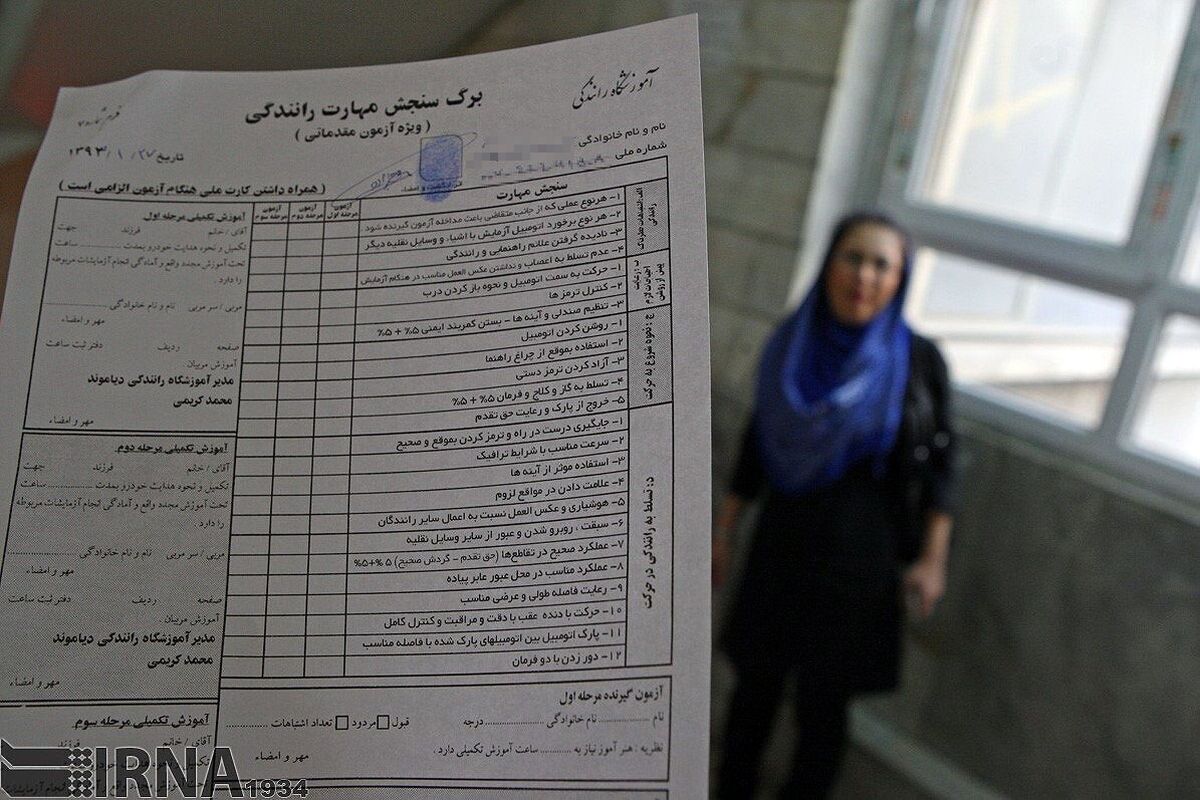 آموزشگاه رانندگی
برگ سنجش مهارت رانندگی
( ویژه آزمون مقدماتی )
نام و نام خانوادگی
شماره ملی
تاریخ ۱۳۹۳/۱/۲۷
( همراه داشتن کارت ملی هنگام آزمون الزامی است )
سنجش مهارت
آزمون مرحله اول
آزمون مرحله دوم
آزمون مرحله سوم
۱- هرنوع عملی که از جانب متقاضی باعث مداخله آزمون گیرنده شود
۲- هر نوع برخورد اتومبیل آزمایش با اشیاء و وسایل نقلیه دیگر
۳- نادیده گرفتن علائم راهنمایی و رانندگی
۴- عدم تسلط به اعصاب و نداشتن عکس العمل مناسب در هنگام آزمایش
۱- حرکت به سمت اتومبیل و نحوه باز کردن درب
۲- کنترل ترمز ها
۳- تنظیم صندلی و آینه ها - بستن کمربند ایمنی ۵% + ۵%
ج : نحوه شروع به حرکت
۱- روشن کردن اتومبیل
۲- استفاده بموقع از چراغ راهنما
۳- آزاد کردن ترمز دستی
۴- تسلط به گاز و کلاچ و فرمان ۵% + ۵%
۵- خروج از پارک و رعایت حق تقدم
د: تسلط به رانندگی در حرکت
۱- جایگیری درست در راه و ترمز کردن بموقع و صحیح
۲- سرعت مناسب با شرایط ترافیک
۳- استفاده موثر از آینه ها
۴- علامت دادن در مواقع لزوم
۵- هوشیاری و عکس العمل نسبت به اعمال سایر رانندگان
۶- سبقت ، روبرو شدن و عبور از سایر وسایل نقلیه
۷- عملکرد صحیح در تقاطع‌ها (حق تقدم - گردش صحیح) ۵%+۵%
۸- عملکرد مناسب در محل عبور عابر پیاده
۹- رعایت فاصله طولی و عرضی مناسب
۱۰- حرکت با دنده عقب با دقت و مراقبت و کنترل کامل
۱۱- پارک اتومبیل بین اتومبیلهای پارک شده با فاصله مناسب
۱۲- دور زدن با دو فرمان
آزمون گیرنده مرحله اول
نام .................... نام خانوادگی .................... درجه
قبول □ مردود □ تعداد اشتباهات ............
نظریه : هنر آموز نیاز به ............ ساعت آموزش تکمیلی دارد .
مهر و امضاء
آموزش تکمیلی مرحله اول
آقای / خانم فرزند جهت
تکمیل و نحوه هدایت خودرو بمدت ................ ساعت
تحت آموزش مجدد واقع و آمادگی انجام آزمایشات مربوطه
را دارد .
مربی / سر مربی نام و نام خانوادگی ................
مهر و امضاء
صفحه ردیف دفتر ثبت ساعت
آموزش مربیان .
مدیر آموزشگاه رانندگی دیاموند
محمد کریمی
مهر و امضاء
آموزش تکمیلی مرحله دوم
آقای / خانم فرزند جهت
تکمیل و نحوه هدایت خودرو بمدت ................ ساعت
تحت آموزش مجدد واقع و آمادگی انجام آزمایشات مربوطه
را دارد .
مربی / سر مربی نام و نام خانوادگی ................
مهر و امضاء
صفحه ردیف دفتر ثبت ساعت
آموزش مربیان .
مدیر آموزشگاه رانندگی دیاموند
محمد کریمی
مهر و امضاء
آموزش تکمیلی مرحله سوم
آقای / خانم فرزند
IRNA 1934